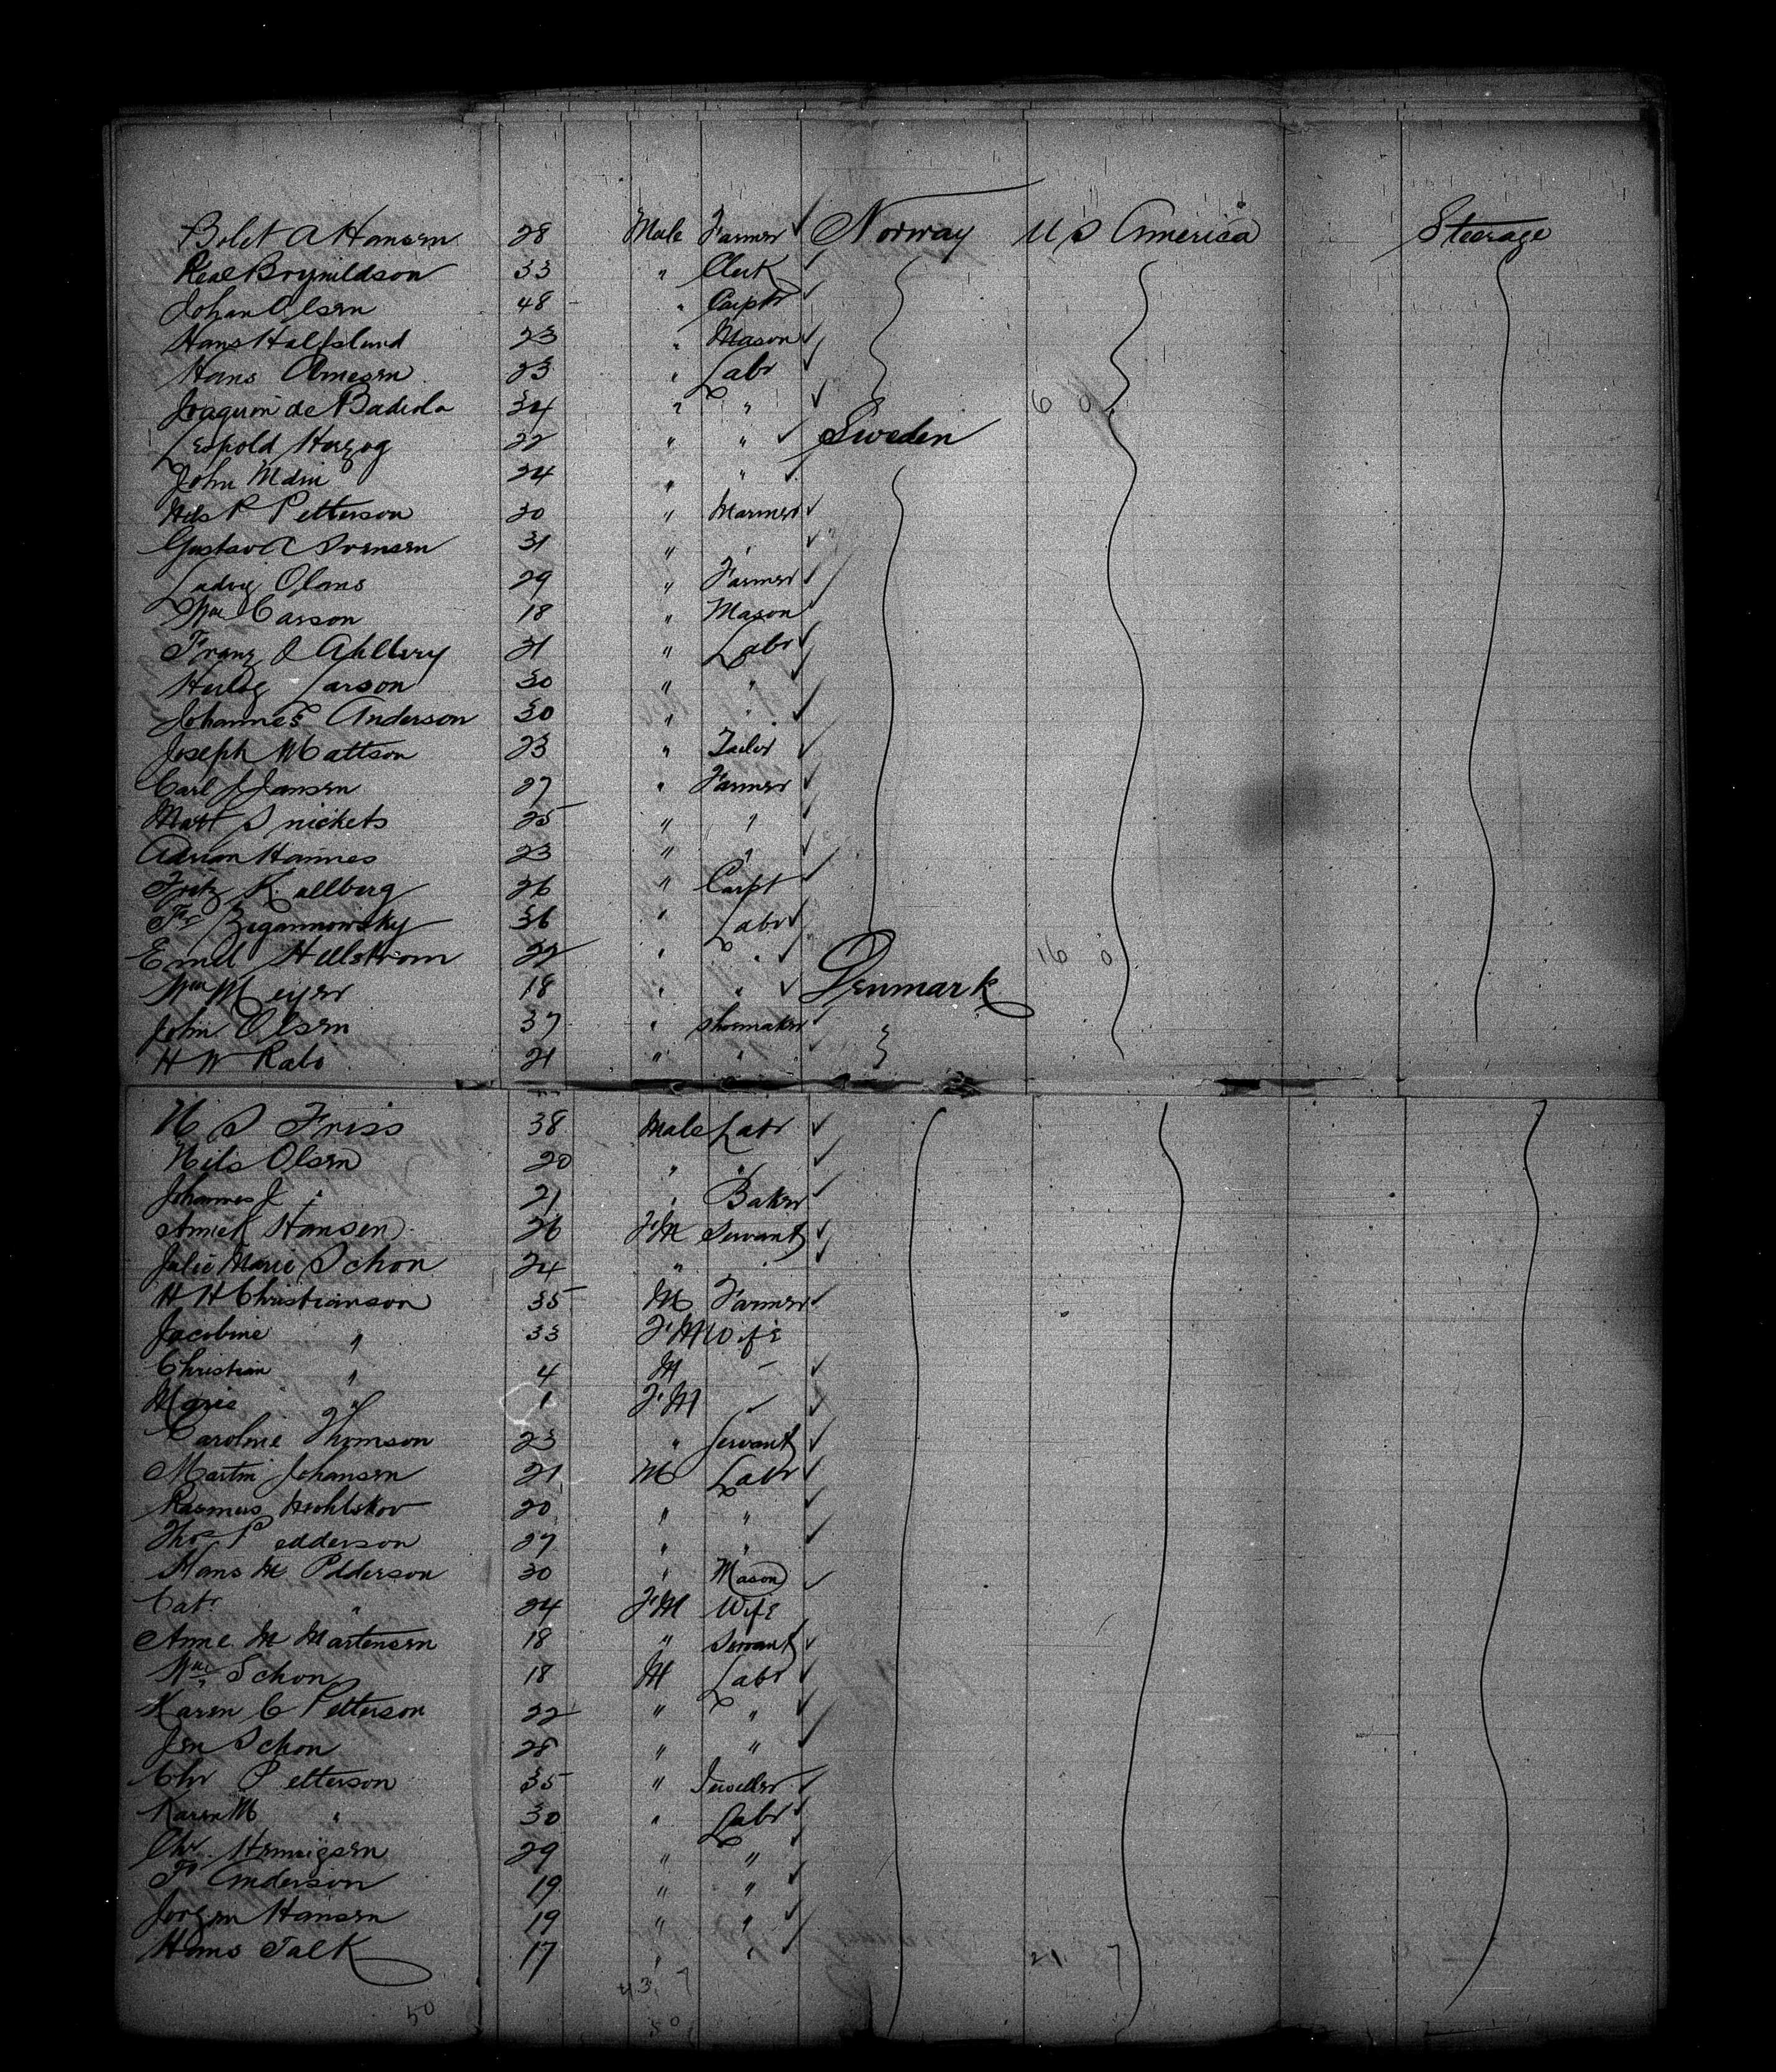 Bolet A Hansen 28 Male Farmer Norway U S America Steerage
Real Brynildson 33 " Clerk
Johan Olsen 48 " Carptr
Hans Halfslund 23 " Mason
Hans Arnesen 23 " Labr
Joaquin de Badiola 34 " " 6 0
Leopold Herzog 22 " " Sweden
John 24 " "
Nils P Petterson 30 " Mariner
Gustav A Svensen 31 " "
Ladvig Olans 29 " Farmer
Wm Carson 18 " Mason
Franz O Ahlberg 31 " Labr
Larson 30 " "
Johannes Anderson 30 " "
Joseph Mattson 23 " Tailor
Carl J Jansen 27 " Farmer
Matt Snickets 25 " "
Adrian Hannes 23 " "
Fritz Kallberg 26 " Carpt
Fr 36 " Labr
Emil Hellstrom 22 " " 16 0
Wm Meyer 18 " " Denmark
John Olsen 37 " Shoemaker
H W Rabo 21 " "
N S Friss 38 Male Labr
Nils Olsen 20 " "
Johannes J " 21 " Baker
Hansen 26 F'M Servant
Julie Marie Schon 24 " "
H H Christianson 35 M Farmer
Jacobine " 33 F'M Wife
Christian " 4 M -
Marie " 1 F'M -
Caroline Thomson 23 " Servant
Martin Johansen 21 M Labr
Rasmus 20 " "
Thos Pedderson 27 " "
Hans M Pedderson 30 " Mason
Catr " 24 F'M Wife
Anne M Martensen 18 " Servant
Wm Schon 18 M Labr
Karen C Petterson 22 " "
Jen Schon 28 " "
Chr Petterson 35 " Jeweller
Karen M " 30 " Labr
Chr Hennigsen 29 " "
Fr Anderson 19 " "
Jorgen Hansen 19 " "
Hans Falk 17 " " 21 7
43 7
50 50